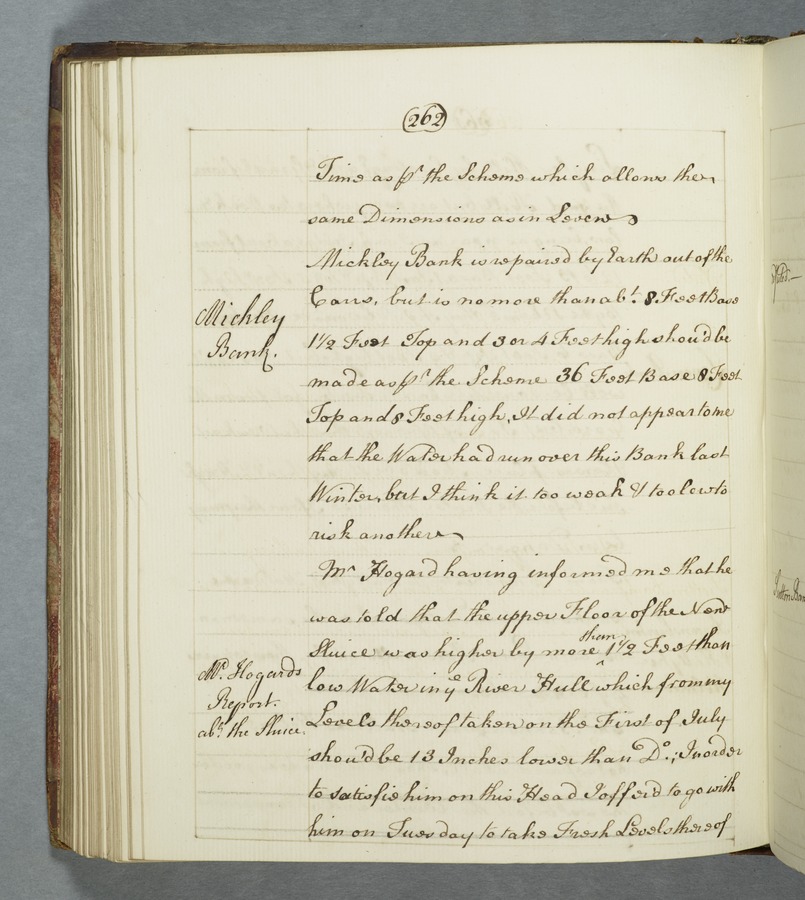 (262)
Time as pr the Scheme which allows the
same Dimensions as in Leven
Mickley Bank is repaired by Earth out of the
Carrs, but is no more than abt. 8 Feet Base
Mickley
Bank.
1½ Feet Top and 3 or 4 Feet high shou'd be
made as pr the Scheme 36 Feet Base 8 Feet
Top and 8 Feet high, It did not appear to me
that the Water had run over this Bank last
Winter, but I think it too weak & too low to
risk another
Mr Hogard having informed me that he
was told that the upper Floor of the New
Sluice was higher by more than 1½ Feet than
Mr. Hogards
Report.
abt. the Sluice.
low Water in ye River Hull which from my
Levels thereof taken on the First of July
shou'd be 13 Inches lower than Do.; In order
to satisfie him on this Head I offer'd to go with
him on Tuesday to take Fresh Levels thereof